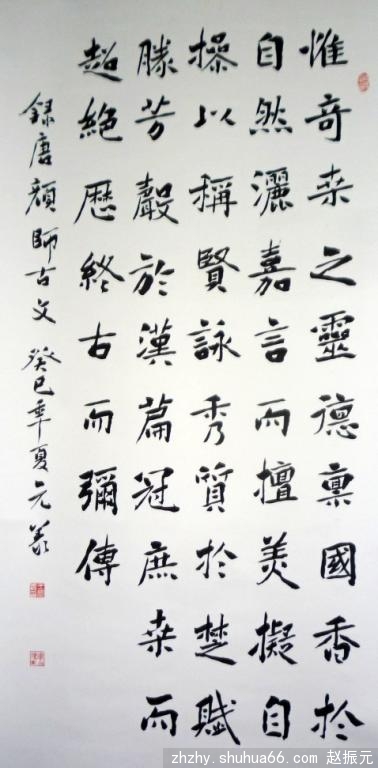 惟奇来之靈德稟國香於
自然灑嘉言而擅美擬自
操以稱賢詠秀質於楚賦
滕芳聲於漢篇冠庶桒而
超絕歷終古而彌傳
錄唐顏師古文 癸巳年夏 元義
zhzhy.shuhua66.com 赵振元